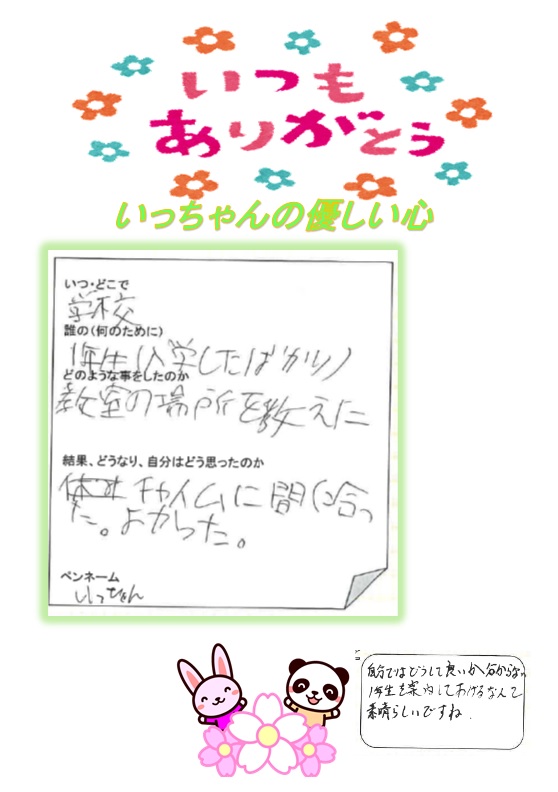 いつも
ありがとう
いっちゃんの優しい心
いつ・どこで
学校
誰の(何のために)
1年生(入学したばかり)
どのような事をしたのか
教室の場所を教えた
結果、どうなり、自分はどう思ったのか
チャイムに間に合っ
た。よかった。
ペンネーム
いっちゃん
自分ではどうして良いか分からない
1年生を案内してあげるなんて
素晴らしいですね.